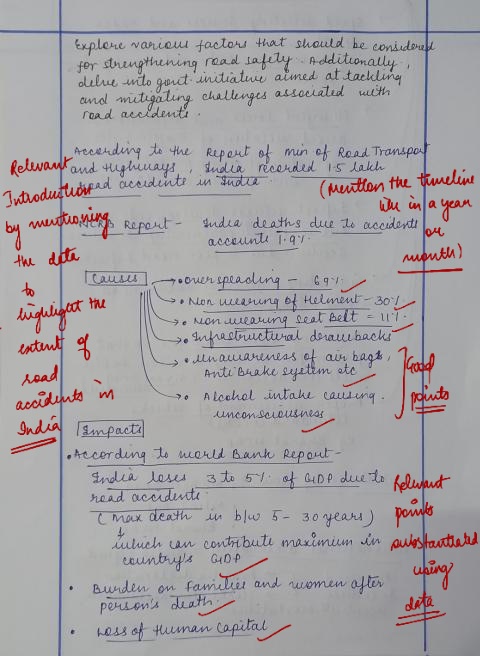 Explore various factors that should be considered
for strengthening road safety. Additionally,
delve into govt initiative aimed at tackling
and mitigating challenges associated with
road accidents.
According to the Report of min of Road Transport
and Highways, India recorded 1.5 lakh
road accidents in India.
(Mention the timeline
like in a year
or
month)
Relevant
Introduction
by mentioning
the data
to
highlight the
extent of
road
accidents in
India
NCRB Report - India deaths due to accidents
accounts 1.9%.
Causes
→ over speading - 69%
→ Non wearing of Helment - 30%
→ Non wearing seat Belt = 11%
→ Infrastructural drawbacks
→ unawareness of air bags,
Anti Brake system etc
→ Alcohol intake causing.
unconsciousness
Good
points
Impacts
• According to world Bank Report -
India loses 3 to 5% of GDP due to
road accidents.
(max death in b/w 5 - 30 years)
↓
which can contribute maximum in
country's GDP
• Burden on families and women after
person's death.
• Loss of Human Capital
Relevant
points
substantiated
using
data